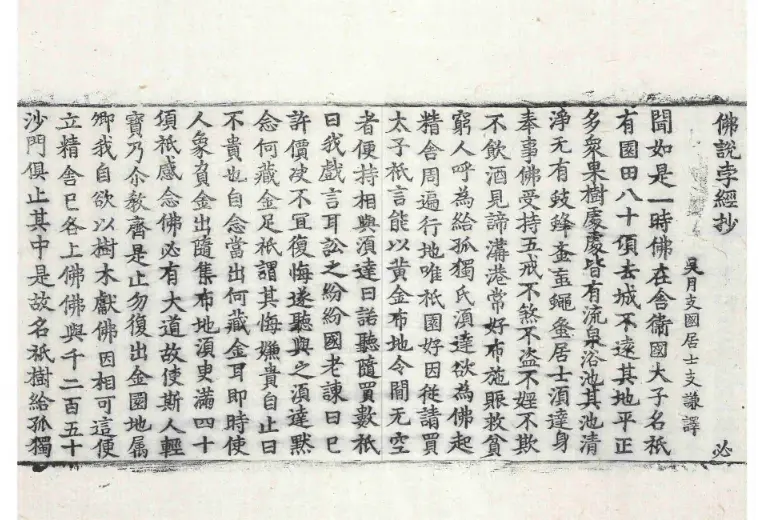 佛說孛經抄 必
吳月支國居士支謙譯
聞如是一時佛在舍衛國大子名祇
有園田八十頃去城不遠其地平正
多衆果樹處處皆有流泉浴池其池清
淨无有蚑蜂蚤䖟蠅𧉪居士湏達身
奉事佛受持五戒不煞不盗不婬不欺
不飲酒見諦溝港常好布施賑救貧
窮人呼為給孤獨氏湏達欲為佛起
精舍周遍行地唯祇園好因從請買
太子祇言能以黄金布地令間无空
者便持相與湏達曰諾聽隨買數祇
曰我戲言耳訟之紛紛國老諫曰已
許價決不冝復悔遂聽與之湏達默
念何藏金足祇謂其悔嫌貴自止曰
不貴也自念當出何藏金耳即時使
人象負金出隨集布地湏臾滿四十
頃祇感念佛必有大道故使斯人輕
寶乃尒敎齊是止勿復出金園地属
卿我自欲以樹木獻佛因相可這便
立精舍已各上佛佛與千二百五十
沙門俱止其中是故名祇樹給孤獨